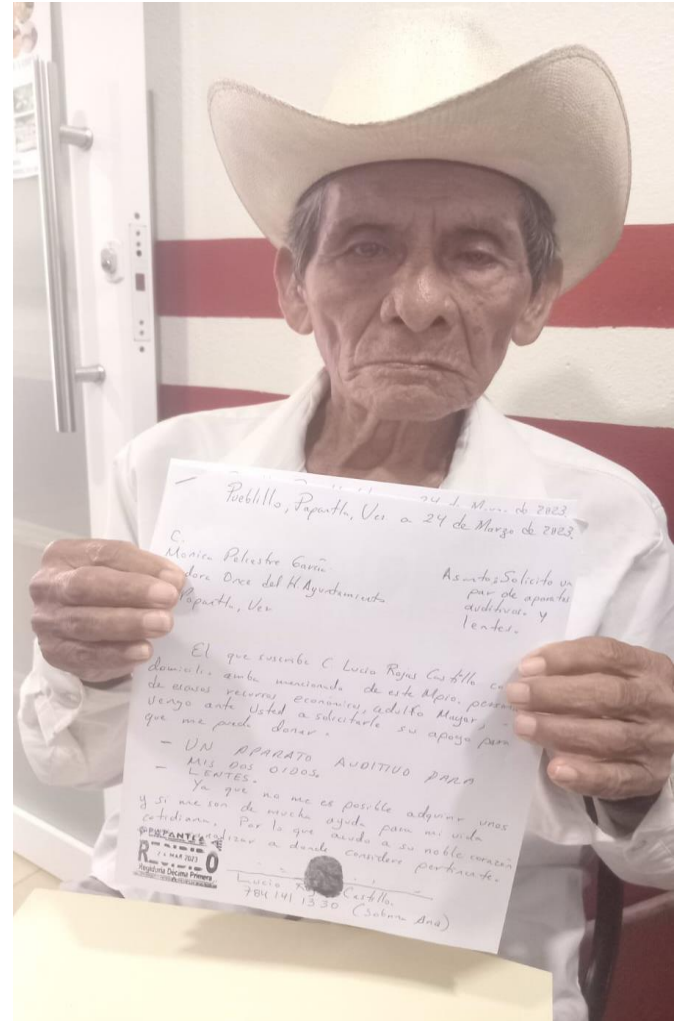 24 de Marzo de 2023
Pueblillo, Papantla, Ver a 24 de Marzo de 2023.
C.
Monica Pelrestre García
dora Once del H Ayuntamiento
Papantla, Ver
Asunto: Solicito un
par de aparatos
auditivos y
lentes.
El que suscribe C Lucio Rojas Castillo co
domicilio arriba mencionado de este Mpio. persona
de escasos recursos economicos, adulto Mayor,
vengo ante Usted a solicitarle su apoyo para
que me pueda donar.
- UN APARATO AUDITIVO PARA
MIS DOS OIDOS.
- LENTES.
Ya que no me es posible adquirir unos
y si me son de mucha ayuda para mi vida
cotidiana. Por lo que acudo a su noble corazón
a donde considere pertinente.
MAR 2023
Regiduría Decima Primera
Lucio Rojas Castillo
784 141 1330 (Sobrina Ana)